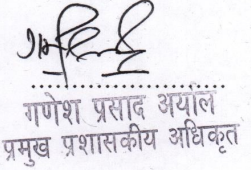 गणेश प्रसाद अर्याल
प्रमुख प्रशासकीय अधिकृत